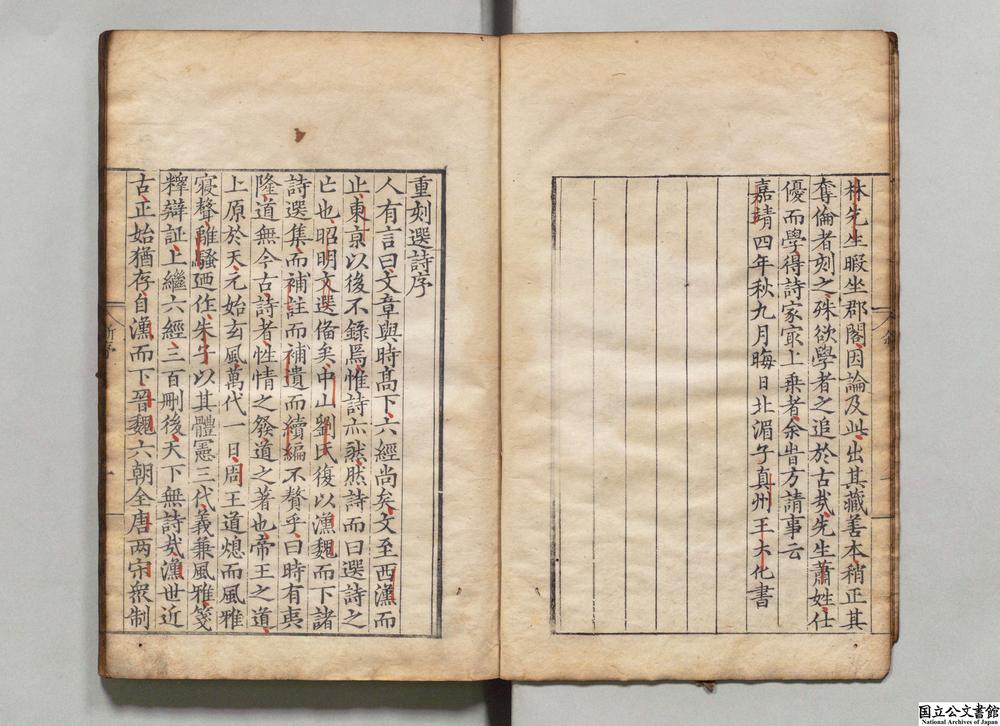 林先生暇坐郡閣因論及此出其藏善本稍正其
奪倫者刻之殊欲學者之追於古哉先生蕭姓仕
優而學得詩家㝡上乗者余昔方請事云
嘉靖四年秋九月晦日北湄子真州王大化書
重刻選詩序
人有言曰文章與時髙下六經尚矣文至西漢而
止東亰以後不錄焉惟詩亦然然詩而曰選詩之
亡也昭明文選俻矣中山劉氏復以漢魏而下諸
詩選集而補註而補遺而續編不贅乎曰時有夷
隆道無今古詩者性情之發道之著也帝王之道
上原於天元始玄風萬代一日周王道熄而風雅
寝聲離騷廼作朱子以其體憲三代義兼風雅箋
釋辯証上繼六經三百刪後天下無詩哉漢世近
古正始猶存自漢而下晉魏六朝全唐两宋衆制
国立公文書館
National Archives of Japan